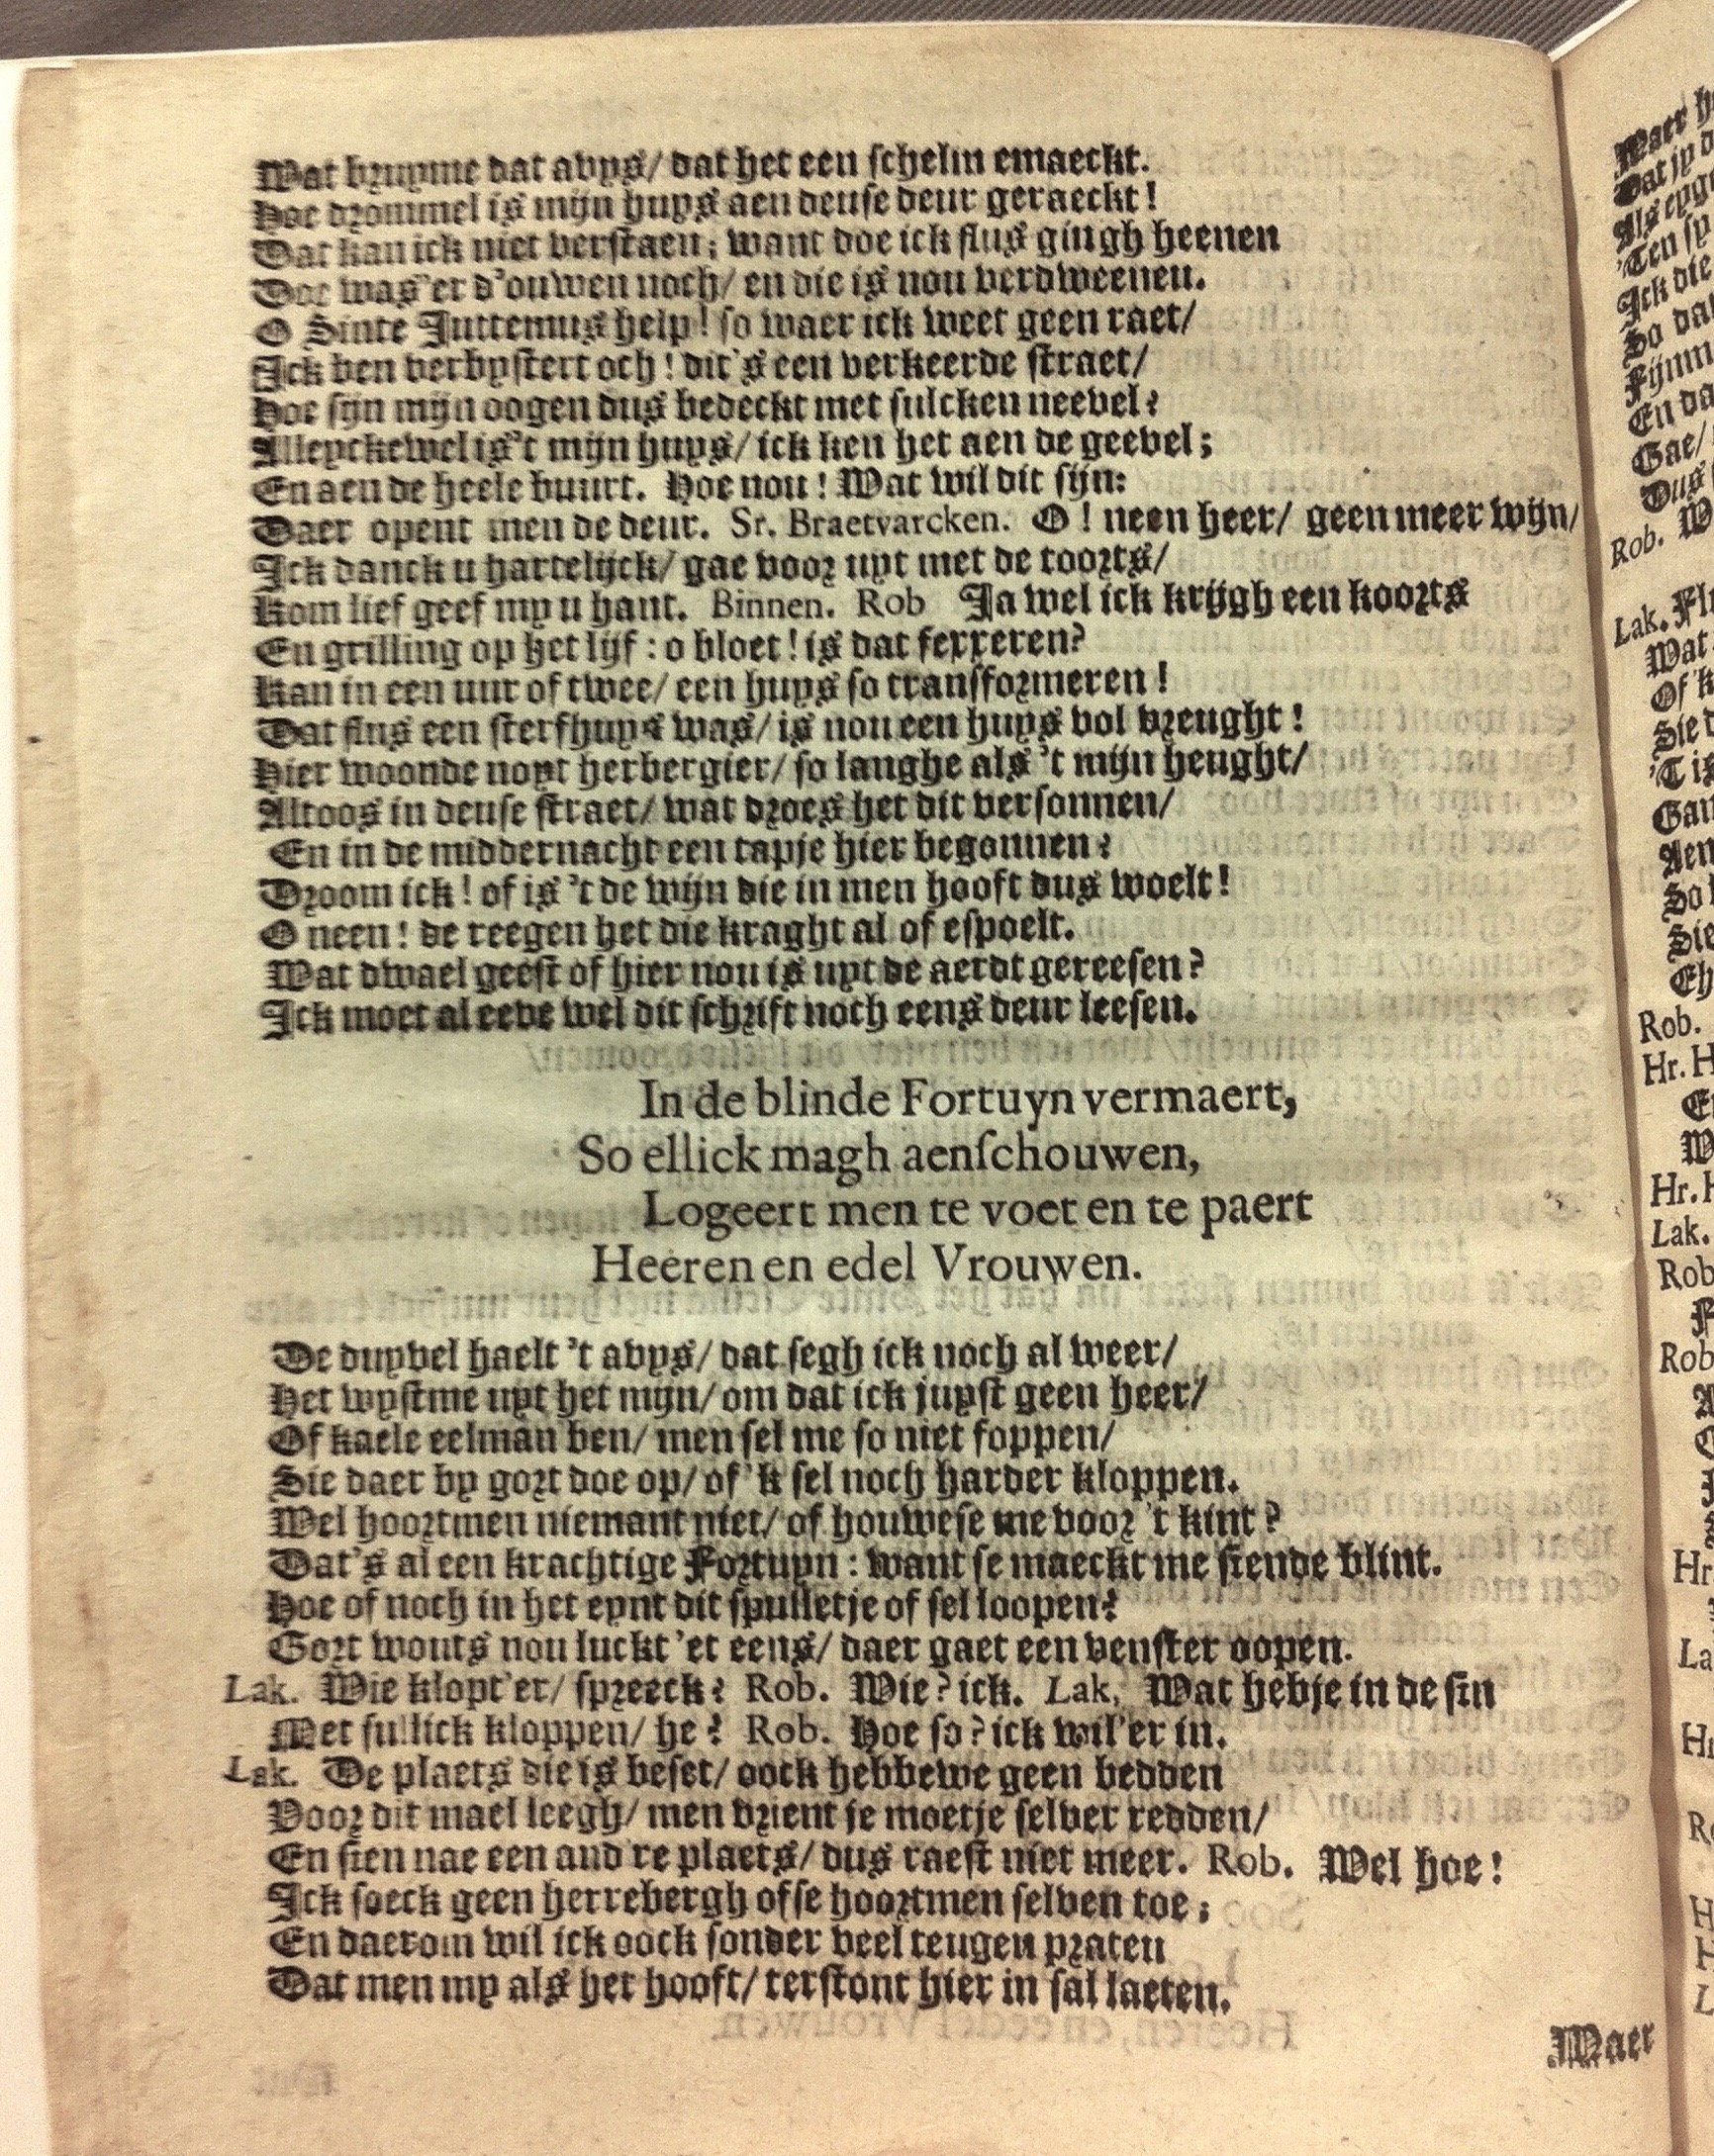 Wat bruyme dat avys/ dat het een schelm emaeckt.
Hoe drommel is mijn huys aen deuse deur geraeckt!
Dat kan ick niet verstaen; want doe ick flus gingh heenen
Doe was'er d'ouwen noch/ en die is nou verdweenen.
O Sinte Juttemus help! so waer ick weet geen raet/
Ick ben verbystert och! dit's een verkeerde straet/
Hoe sijn mijn oogen dus bedeckt met sulcken neevel?
Alleyckewel is't mijn huys/ ick ken het aen de geevel;
En aen de heele buurt. Hoe nou! Wat wil dit sijn:
Daer opent men de deur. Sr. Braetvarcken. O! neen heer/ geen meer wijn/
Ick danck u hartelijck/ gae voor uyt met de toorts/
Kom lief geef my u hant. Binnen. Rob Ja wel ick krijgh een koorts
En grilling op het lijf: o bloet! is dat ferreren?
Kan in een uur of twee/ een huys so transformeren!
Dat flus een sterfhuys was/ is nou een huys vol vreught!
Hier woonde noyt herbergier/ so langhe als 't mijn heught/
Altoos in deuse straet/ wat droes het dit versonnen/
En in de middernacht een tapje hier begonnen?
Droom ick! of is 't de wijn die in men hooft dus woelt!
O neen! de reegen het die kraght al of espoelt.
Wat dwael geest of hier nou is uyt de aerdt gereesen?
Ick moet al eeve wel dit schrift noch eens deur leesen.
In de blinde Fortuyn vermaert,
So ellick magh aenschouwen,
Logeert men te voet en te paert
Heeren en edel Vrouwen.
De duyvel haelt 't avys/ dat segh ick noch al weer/
Het wystme uyt het mijn/ om dat ick juyst geen heer/
Of kaele eelman ben/ men sel me so niet foppen/
Sie daer by gort doe op/ of 'k sel noch harder kloppen.
Wel hoortmen niemant niet/ of houwese me voor 't kint?
Dat's al een krachtige Fortuyn: want se maeckt me siende blint.
Hoe of noch in het eynt dit spulletje of sel loopen?
Gort wouts nou luckt 'et eens/ daer gaet een venster oopen.
Lak. Wie klopt'er/ spreeck? Rob. Wie? ick. Lak, Wat hebje in de sin
Met sullick kloppen/ he? Rob. Hoe so? ick wil'er in.
Lak. De plaets die is beset/ oock hebbewe geen bedden
Voor dit mael leegh/ men vrient je moetje selver redden/
En sien nae een and re plaets/ dus raest niet meer. Rob. Wel hoe!
Ick soeck geen herrebergh ofse hoortmen selven toe;
En daerom wil ick oock sonder veel teugen praten
Dat men my als het hooft/ terstont hier in sal laeten.
Maer